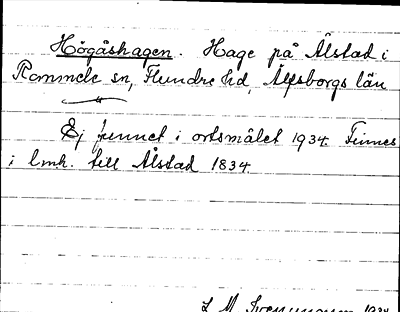 Högåshagen. Hage på Ålstad i
Rommele sn, Flundre hd, Älfsborgs län
Ej funnet i ortsmålet 1934. Finnes
i lmh. till Ålstad 1834
1934